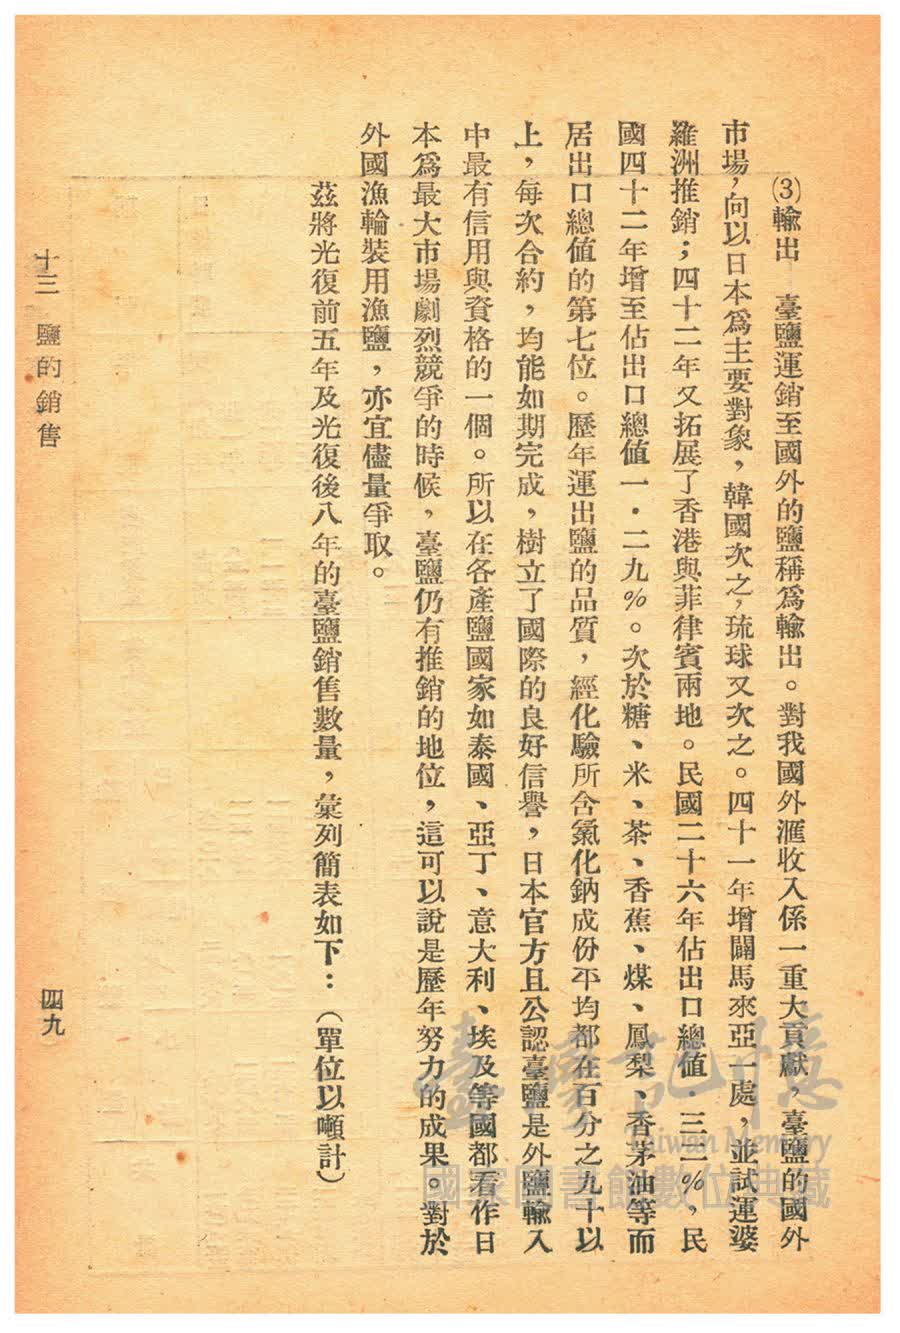 ⑶輸出　臺鹽運銷至國外的鹽稱爲輸出。對我國外滙收入係一重大貢獻，臺鹽的國外
市場，向以日本爲主要對象，韓國次之，琉球又次之。四十一年增闢馬來亞一處，並試運婆
羅洲推銷；四十二年又拓展了香港與菲律賓兩地。民國二十六年佔出口總值・三二％，民
國四十二年增至佔出口總值一・二九％。次於糖、米、茶、香蕉、煤、鳳梨、香茅油等而
居出口總值的第七位。歷年運出鹽的品質，經化驗所含氯化鈉成份平均都在百分之九十以
上，每次合約，均能如期完成，樹立了國際的良好信譽，日本官方且公認臺鹽是外鹽輸入
中最有信用與資格的一個。所以在各產鹽國家如泰國、亞丁、意大利、埃及等國都看作日
本爲最大市場劇烈競爭的時候，臺鹽仍有推銷的地位，這可以說是歷年努力的成果。對於
外國漁輪裝用漁鹽，亦宜儘量爭取。
茲將光復前五年及光復後八年的臺鹽銷售數量，彙列簡表如下：（單位以噸計）
十三　鹽的銷售
四九
臺灣記憶
Taiwan Memory
國家圖書館數位典藏